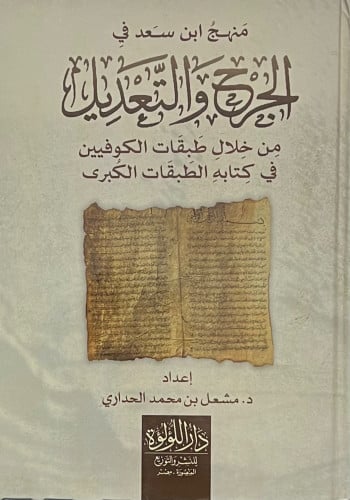 مَنهجُ ابن سَعد في
الجَرْحِ وَالتَّعْدِيلِ
مِن خِلالِ طَبقَات الكوفيين
في كِتابهِ الطَبقَات الكُبرى
إعداد
د. مشعل بن محمد الحداري
دَارُ اللُّؤْلُؤَة
للنشر والتوزيع
المنصورة - مصر